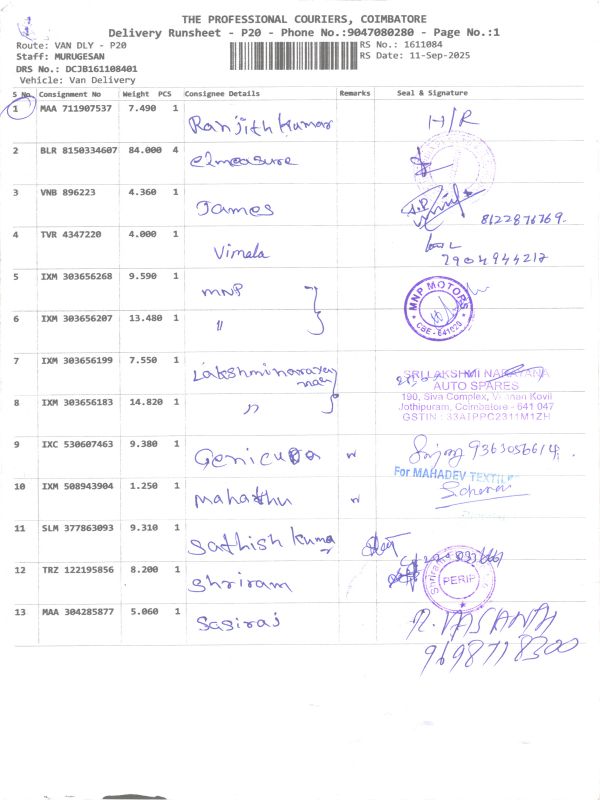 THE PROFESSIONAL COURIERS, COIMBATORE
Delivery Runsheet - P20 - Phone No.:9047080280 - Page No.:1
Route: VAN DLY - P20
RS No.: 1611084
Staff: MURUGESAN
RS Date: 11-Sep-2025
DRS No.: DCJB161108401
Vehicle: Van Delivery
S No. Consignment No Weight PCS Consignee Details Remarks Seal & Signature
1 MAA 711907537 7.490 1 Ranjith Kumar H/R
2 BLR 8150334607 84.000 4 elmeasure
3 VNB 896223 4.360 1 James 8122876769.
4 TVR 4347220 4.000 1 Vimala 7904944217
5 IXM 303656268 9.590 1 MNP
MNP MOTORS
CBE - 641020
6 IXM 303656207 13.480 1 "
7 IXM 303656199 7.550 1 Lakshminarayanan
SRI LAKSHMI NARAYANA
AUTO SPARES
8 IXM 303656183 14.820 1 "
190, Siva Complex, Kovil
Jothipuram, Coimbatore - 641 047
GSTIN : 33AIPPC2311M1ZH
9 IXC 530607463 9.380 1 Genicura 9363056614
10 IXM 508943904 1.250 1 Mahathu
For MAHADEV TEXTILE
11 SLM 377863093 9.310 1 Sathish Kumar
12 TRZ 122195856 8.200 1 Shriram
PERIP
13 MAA 304285877 5.060 1 Sasiraj
R. VASANTH
9698718300